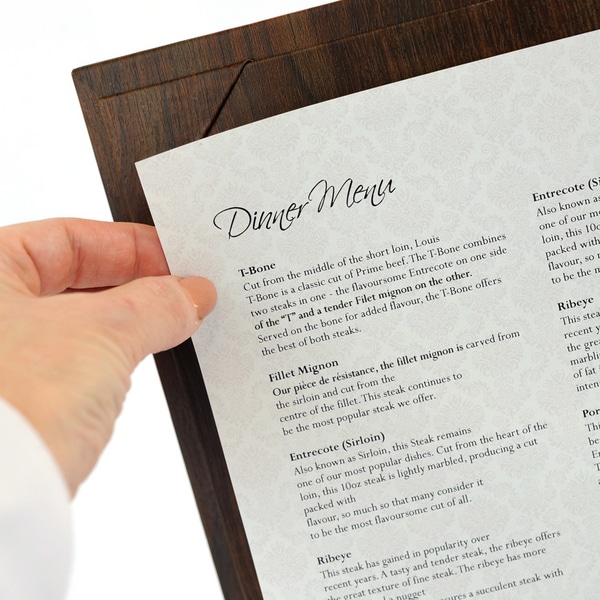 Dinner Menu
T-Bone
Cut from the middle of the short loin, Louis
T-Bone is a classic cut of Prime beef. The T-Bone combines
two steaks in one - the flavoursome Entrecote on one side
of the "T" and a tender Filet mignon on the other.
Served on the bone for added flavour, the T-Bone offers
the best of both steaks.
Fillet Mignon
Our pièce de résistance, the fillet mignon is carved from
the sirloin and cut from the
centre of the fillet. This steak continues to
be the most popular steak we offer.
Entrecote (Sirloin)
Also known as Sirloin, this Steak remains
one of our most popular dishes. Cut from the heart of the
loin, this 10oz steak is lightly marbled, producing a cut
packed with
flavour, so much so that many consider it
to be the most flavoursome cut of all.
Ribeye
This steak has gained in popularity over
recent years. A tasty and tender steak, the ribeye offers
the great texture of fine steak. The ribeye has more
a nugget
a succulent steak with
Entrecote (Si
Also known as
one of our mo
loin, this 10o
packed with
flavour, so
to be the m
Ribeye
This stea
recent y
the grea
marbli
of fat
inten
Por